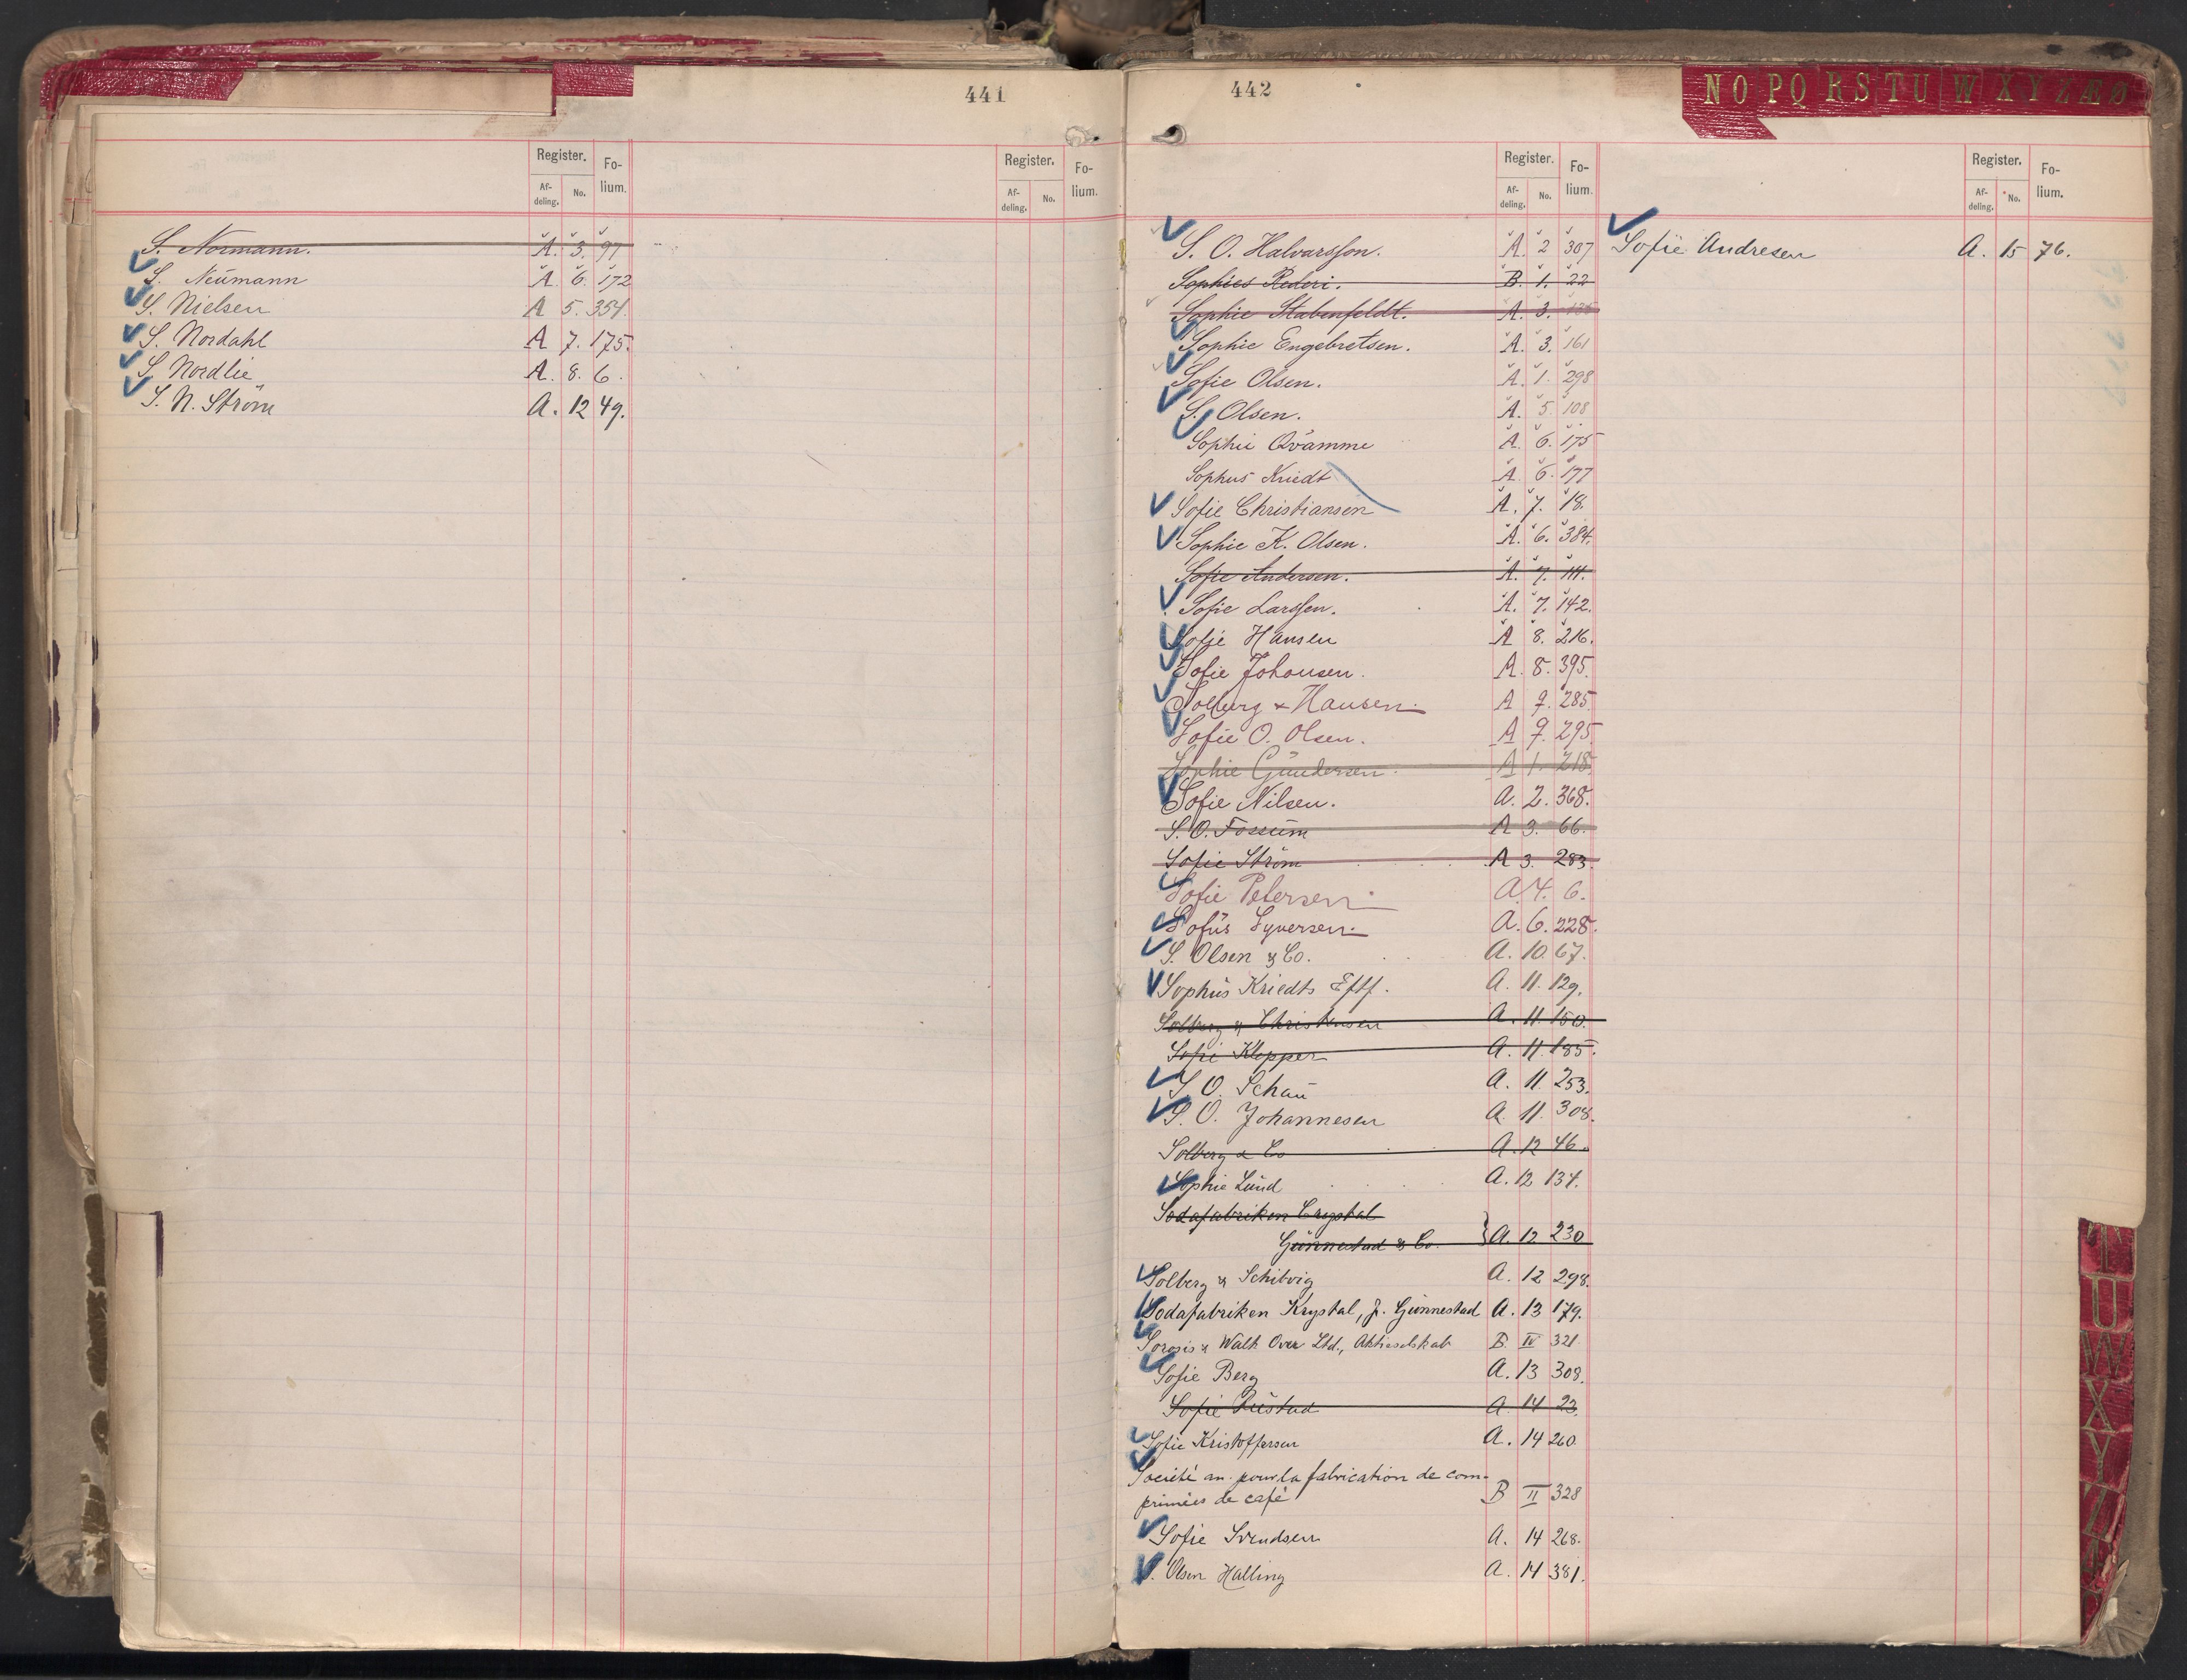 441
Register. Fo-
Af- deling. No. lium.
Register. Fo-
Af- deling. No. lium.
S. Normann. A. 3. 91
S. Neumann A. 6. 172
S. Nielsen A 5. 354.
S. Nordahl A 7. 175.
S. Nordlie A. 8. 6.
S. N. Strøm A. 12 49.
442
N O P Q R S T U W X Y Z Æ Ø
Register. Fo-
Af- deling. No. lium.
Register. Fo-
Af- deling. No. lium.
S. O. Halvarsson. A. 2 307
Sophies Rederi. B. 1. 22
Sophie Stabenfeldt. A. 3.
Sophie Engebretsen. A. 3. 161
Sofie Olsen. A. 1. 298
S. Olsen. A. 5. 108
Sophie Qvamme A. 6. 175
Sophus Kriedt A. 6. 177
Sofie Christiansen A. 7. 18.
Sophie K. Olsen. A. 6. 384.
Sofie Andersen. A. 7. 111.
Sofie Larssen. A. 7. 142.
Sofie Hansen A 8. 216.
Sofie Johansen. A. 8. 395.
Solberg & Hansen. A 9. 285.
Sofie O. Olsen. A 9. 295
Sophie Gundersen. A 1. 218.
Sofie Nilsen. A. 2. 368.
S. O. Fossum A 3. 66.
Sofie Strøm A 3. 283.
Sofie Petersen A. 4. 6.
Sofus Syversen. A. 6. 228.
S. Olsen & Co. A. 10. 67.
Sophus Kriedts Eftf. A. 11. 129.
Solberg & Christensen A. 11. 150.
Sofie Klopper A. 11. 185.
S. O. Schau A. 11. 253.
S. O. Johannesen A. 11. 308.
Solberg & Co A. 12 46.
Sophie Lund A. 12 134.
Sodafabriken Crystal
Gunnestad & Co. A. 12 230
Solberg & Schibvig A. 12 298.
Sodafabriken Krystal, J. Gunnestad A. 13 179.
Sorosis & Walk Over Ltd., Aktieselskab B. IV 321
Sofie Berg A. 13 308.
Sofie A. 14 23.
Sofie Kristoffersen A. 14 260.
Société an. pour la fabrication de com-
primées de café B II 328
Sofie Svendsen A. 14 268.
S. Olsen Halling A. 14 381.
Sofie Andresen A. 15 76.
T U W X Y Z